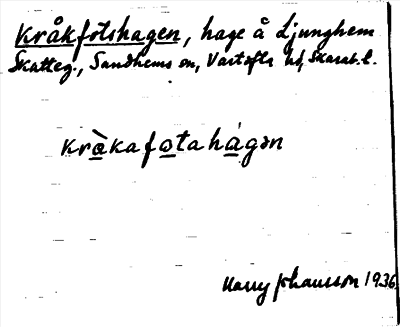 Kråkfotshagen, hage å Ljunghem
Skatteg., Sandhems sn, Vartofta hd, Skarab. l.
kràkafotahágən
Harry Johansson 1936.